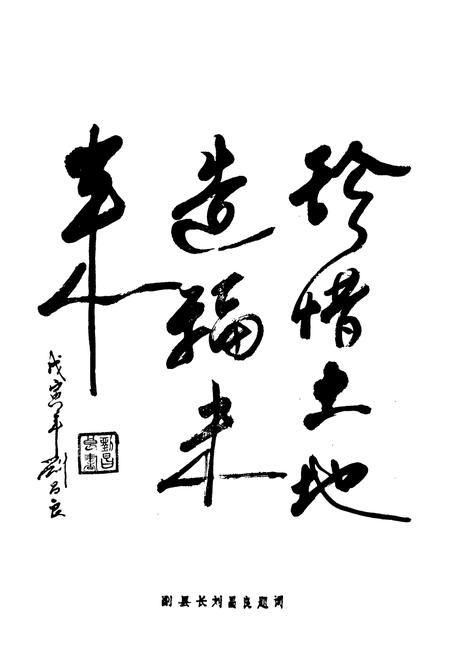 珍惜土地
造福未
来
戊寅年 劉昌良
劉昌良書
副县长刘昌良题词